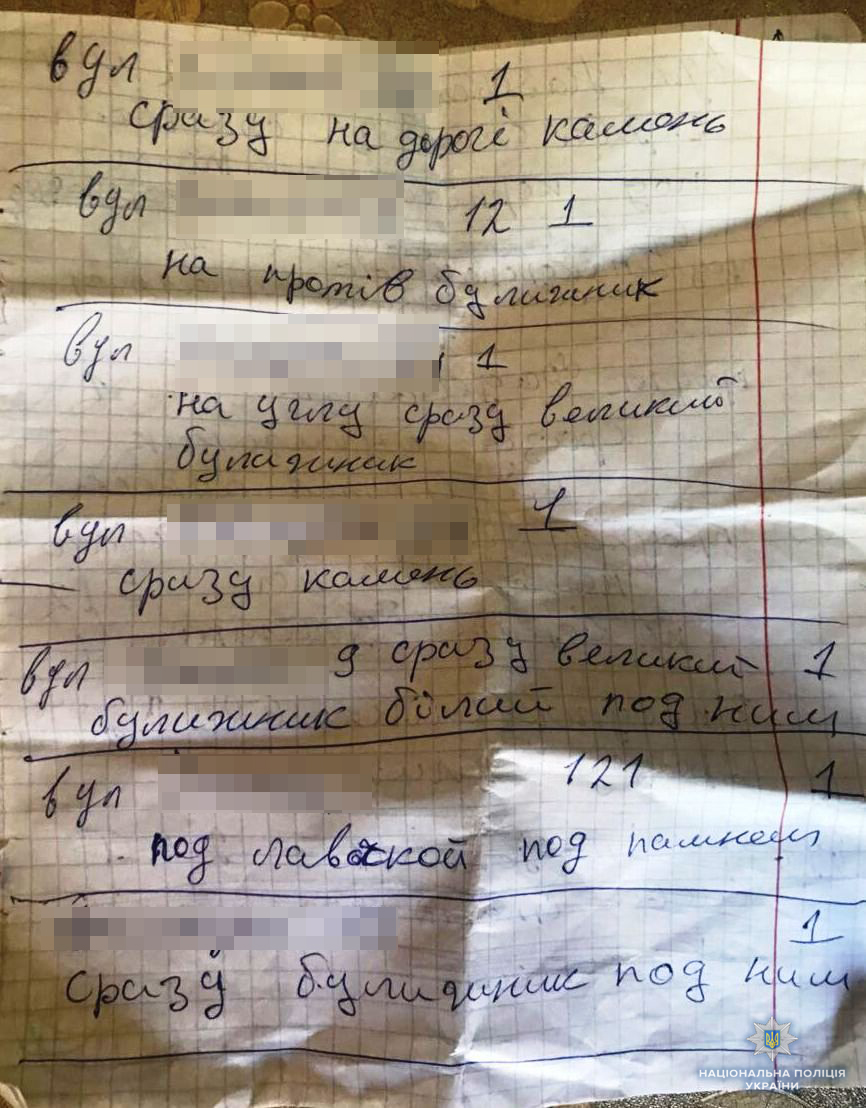 вул 1
сразу на дорогі камень
вул 12 1
на протів булижник
вул 1
на углу сразу великий
булижник
вул 1
сразу камень
вул 9 сразу великий 1
булижник білий под ним
вул 121 1
под лавкой под камнем
1
сразу булижник под ним
НАЦІОНАЛЬНА ПОЛІЦІЯ
УКРАЇНИ